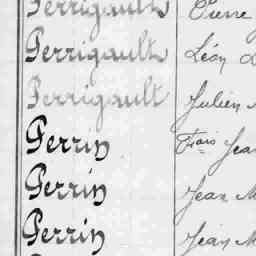 Perrigault Pierre
Perrigault Léon
Perrigault Julien
Perrin Fçois Jean
Perrin Jean M
Perrin Jean M